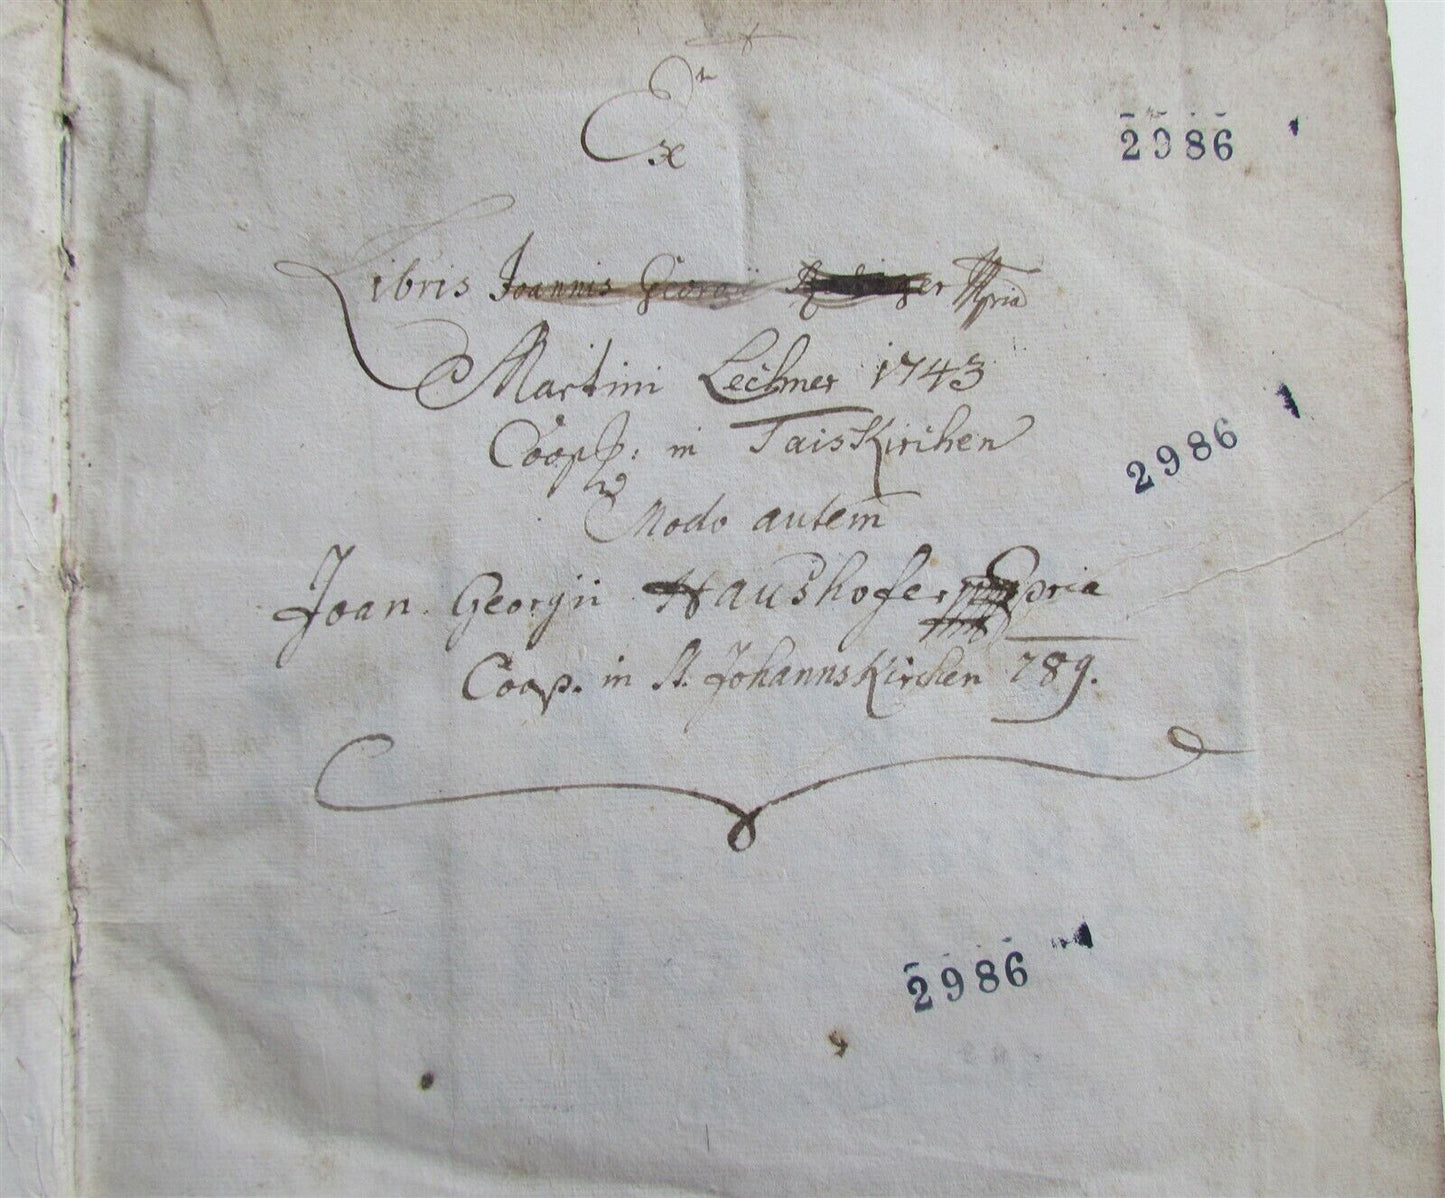 Ex
2986
Libris Joannis Georgij
Martini Lechner 1743
Coopr: in Taiskirchen
2986
Modo autem
Joan Georgii Haushofer mppria
Coop. in St. Johannskirchen 789.
2986